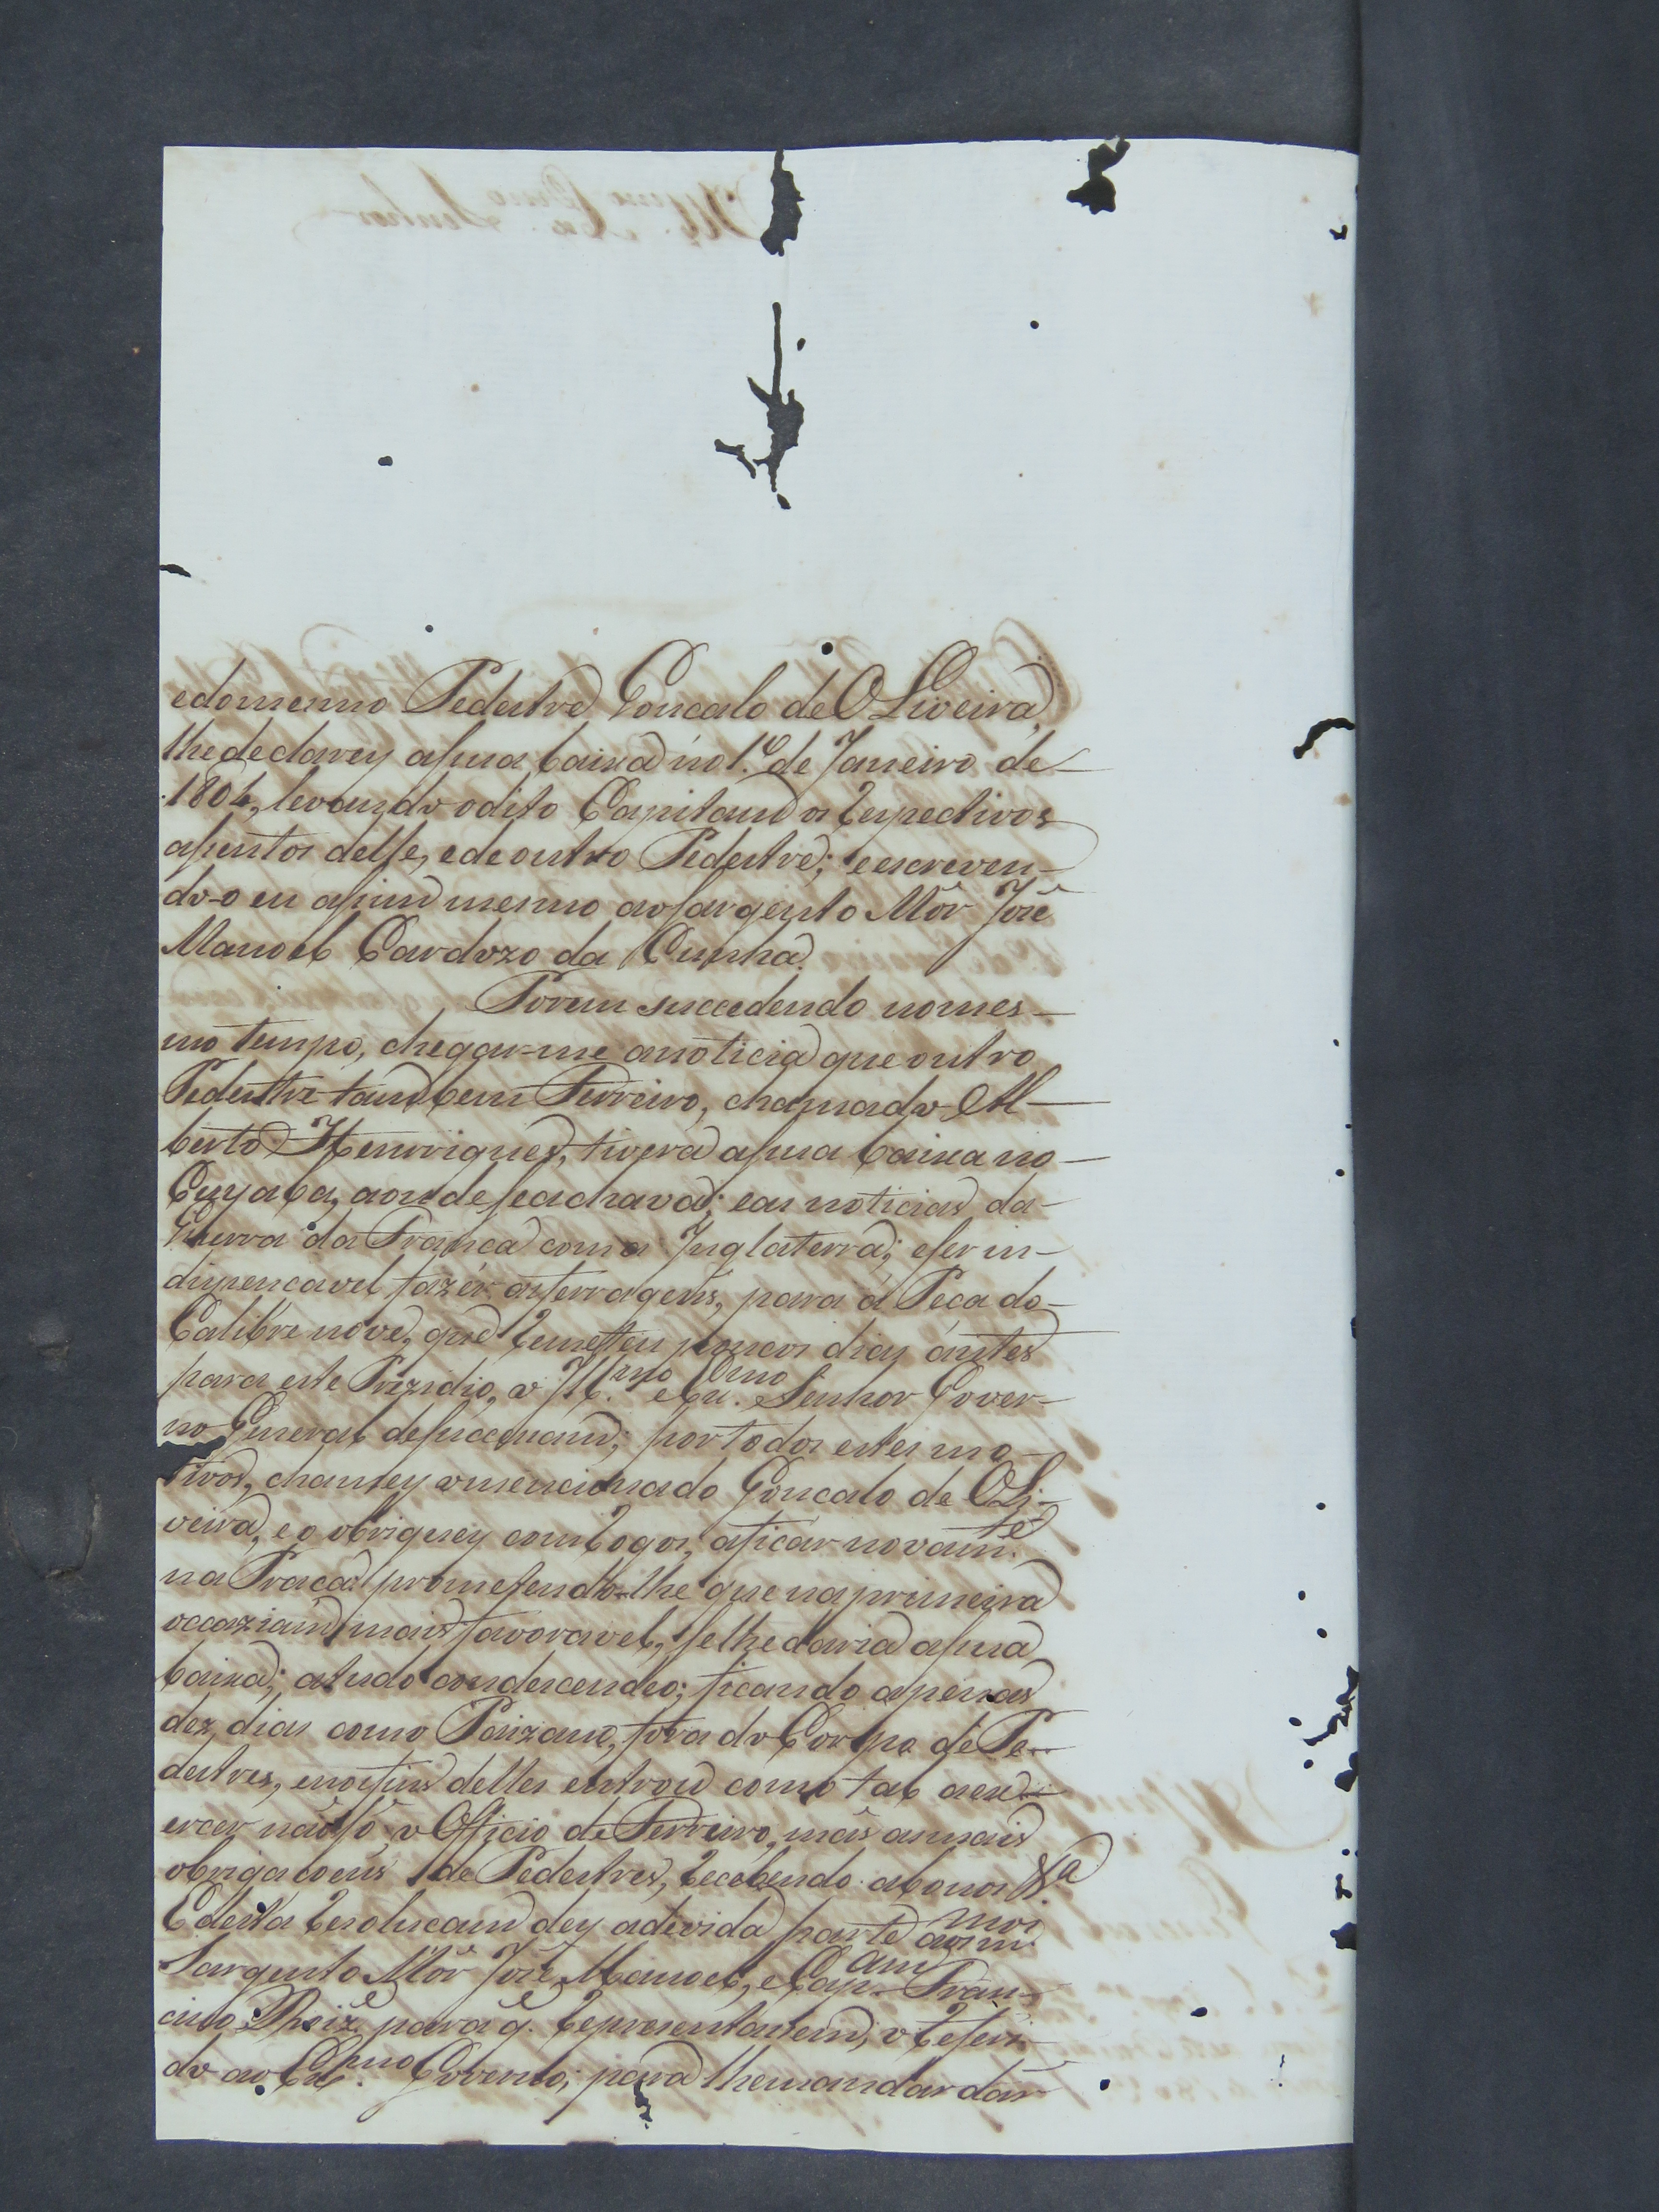 edomesmo Pedestre Goncalo de OLiveira,
lhe declarey asua baixa no 1.º de Janeiro de
1804, levando odito Capitam os Respectivos
asentos delle, e de outro Pedestre; e escreven-
do-o eu asim mesmo ao Sargento Mór José
Manoel Cardozo da Cunha.
Porem succedendo nomes-
mo tempo, chegar-me anoticia que outro
Pedestre tambem Ferreiro, chamado Al-
berto Henriques, tivera asua baixa no
Cuyaba, aonde se achava; e as noticias da
Guerra da Franca com a Inglaterra; e ser in-
dispencavel fazér as ferragens, para á Peca do
Calibre nove, que Remetteu poucos dias ántes
para este Prezidio, o Ill.mo e Ex.mo Senhor Gover-
no General de sucessam; por todos estes mo-
tivos, chamey omencionado Goncalo de OLi-
veira, e o obriguey com Rogos, aficar novam.te
na Praca: prometendo-lhe que na primeira
occaziam mais favoravel, se lhe daria asua
baixa; atudo condescendeo; ficando apenas
dez dias como Paizano, fora do Corpo de Pe-
destres, e no fim delles entrou como tal aex-
ercer não só o Officio de Ferreiro, mas as mais
obrigacoens de Pedestres, Recebendo abonos &.a
E desta Resolucam dey adevida parte aos m.mos
Sargento Mór José Manoel, e Cap.am Fran-
cisco Roiz, para q.e Reprezentassem, o Referi-
do ao Ex.mo Governo; para lhe mandar dar